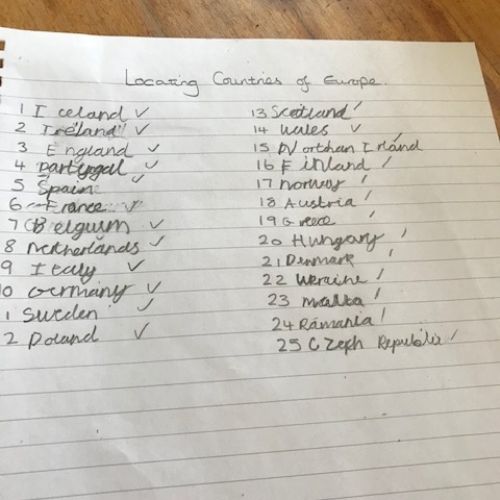 Locating Countries of Europe.
1 Iceland ✓
2 Ireland ✓
3 England ✓
4 Partyugal ✓
5 Spain ✓
6 France ✓
7 Belguim ✓
8 Netherlands ✓
9 Italy ✓
10 Germany ✓
1 Sweden ✓
2 Poland ✓
13 Scotland
14 Wales ✓
15 Northan Irland
16 Finland
17 Norway
18 Austria
19 Greece
20 Hungary
21 Denmark
22 Ukraine
23 Malta
24 Ramania
25 Czeph Republix